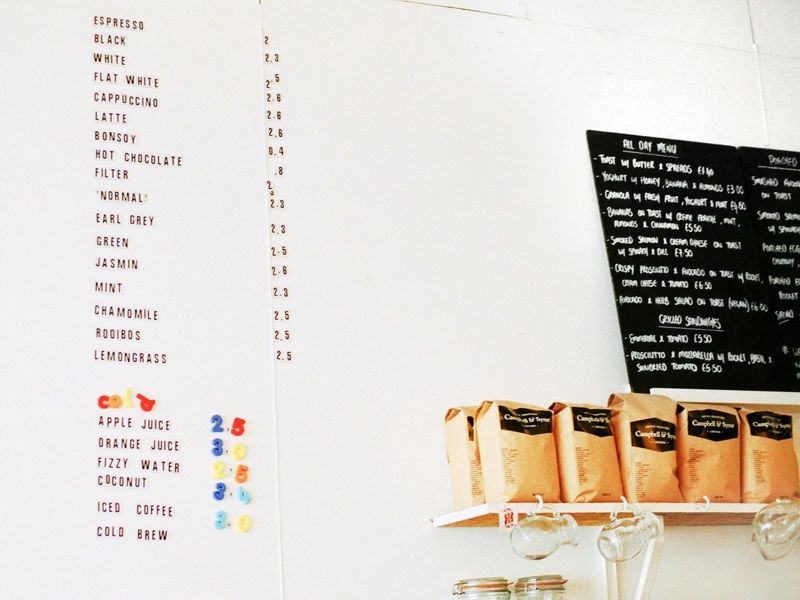 ESPRESSO
BLACK 2
WHITE 2.3
FLAT WHITE 2.5
CAPPUCCINO 2.6
LATTE 2.6
BONSOY 2.6
HOT CHOCOLATE 0.4
FILTER 2.8
"NORMAL" 2.3
EARL GREY 2.3
GREEN 2.5
JASMIN 2.6
MINT 2.3
CHAMOMILE 2.5
ROOIBOS 2.5
LEMONGRASS 2.5
cold
APPLE JUICE 2.5
ORANGE JUICE 3.0
FIZZY WATER 2.5
COCONUT 3.4
ICED COFFEE 3.0
COLD BREW
ALL DAY MENU
- TOAST W/ BUTTER & SPREADS £1.40
- YOGHURT W/ HONEY, BANANA & ALMONDS £3.00
- GRANOLA W/ FRESH FRUIT, YOGHURT & MINT £4.50
- BANANAS ON TOAST W/ CREME FRAICHE, MINT,
ALMONDS & CINNAMON £5.50
- SMOKED SALMON & CREAM CHEESE ON TOAST
W/ SPINACH & DILL £7.50
- CRISPY PROSCIUTTO & AVOCADO ON TOAST W/ ROCKET,
CREAM CHEESE & TOMATO £6.50
- AVOCADO & HERB SALAD ON TOAST (VEGAN) £6.00
GRILLED SANDWICHES
- EMMENTAL & TOMATO £5.50
- PROSCIUTTO & MOZZARELLA W/ ROCKET, BASIL &
SUNDRIED TOMATO £5.50
POACHED
SMASHED AVOCADO
ON TOAST
SMOKED SALMON
W/ SPINACH
POACHED EGG
CHUTNEY,
POACHED EGG
ROCKET
SALAD
Campbell & Syme
Campbell & Syme
Campbell & Syme
Campbell & Syme
Campbell & Syme